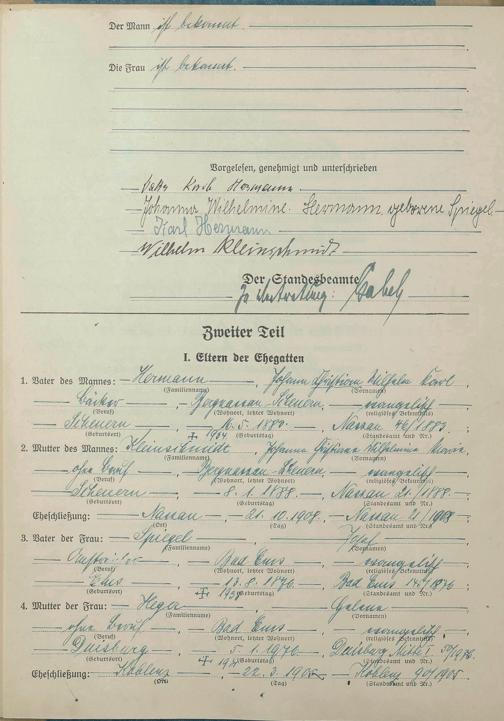 Der Mann ist bekannt.
Die Frau ist bekannt.
Vorgelesen, genehmigt und unterschrieben
Karl Hermann
Johanna Wilhelmine Hermann geborene Spiegel
Karl Hermann
Wilhelm Kleinschmidt
Der Standesbeamte
In Vertretung:
Zweiter Teil
I. Eltern der Ehegatten
1. Vater des Mannes: Hermann, Johann Wilhelm Karl,
(Familienname) (Vornamen)
Bäcker, Bergnassau-Scheuern, evangelisch
(Beruf) (Wohnort, letzter Wohnort) (religiöses Bekenntnis)
Scheuern, 5. 1883, Nassau 46/1883.
(Geburtsort) (Geburtstag) (Standesamt und Nr.)
2. Mutter des Mannes: Kleinschmidt, Johanna Wilhelmine
(Familienname) (Vornamen)
ohne Beruf, Bergnassau-Scheuern, evangelisch
(Beruf) (Wohnort, letzter Wohnort) (religiöses Bekenntnis)
Scheuern, 8. 1. 1888, Nassau 1888.
(Geburtsort) (Geburtstag) (Standesamt und Nr.)
Eheschließung: Nassau, 21. 10. 1908, Nassau 21/1908
(Ort) (Tag) (Standesamt und Nr.)
3. Vater der Frau: Spiegel, Josef
(Familienname) (Vornamen)
Bad Ems, evangelisch
(Beruf) (Wohnort, letzter Wohnort) (religiöses Bekenntnis)
Ems, 13. 8. 1876, Bad Ems
(Geburtsort) (Geburtstag) (Standesamt und Nr.)
4. Mutter der Frau: Heger
(Familienname) (Vornamen)
ohne Beruf, Bad Ems, evangelisch
(Beruf) (Wohnort, letzter Wohnort) (religiöses Bekenntnis)
Duisburg, 5. 1. 1876, Duisburg Mitte I
(Geburtsort) (Geburtstag) (Standesamt und Nr.)
Eheschließung: Koblenz, 22. 3. 1905, Koblenz 90/1905
(Ort) (Tag) (Standesamt und Nr.)